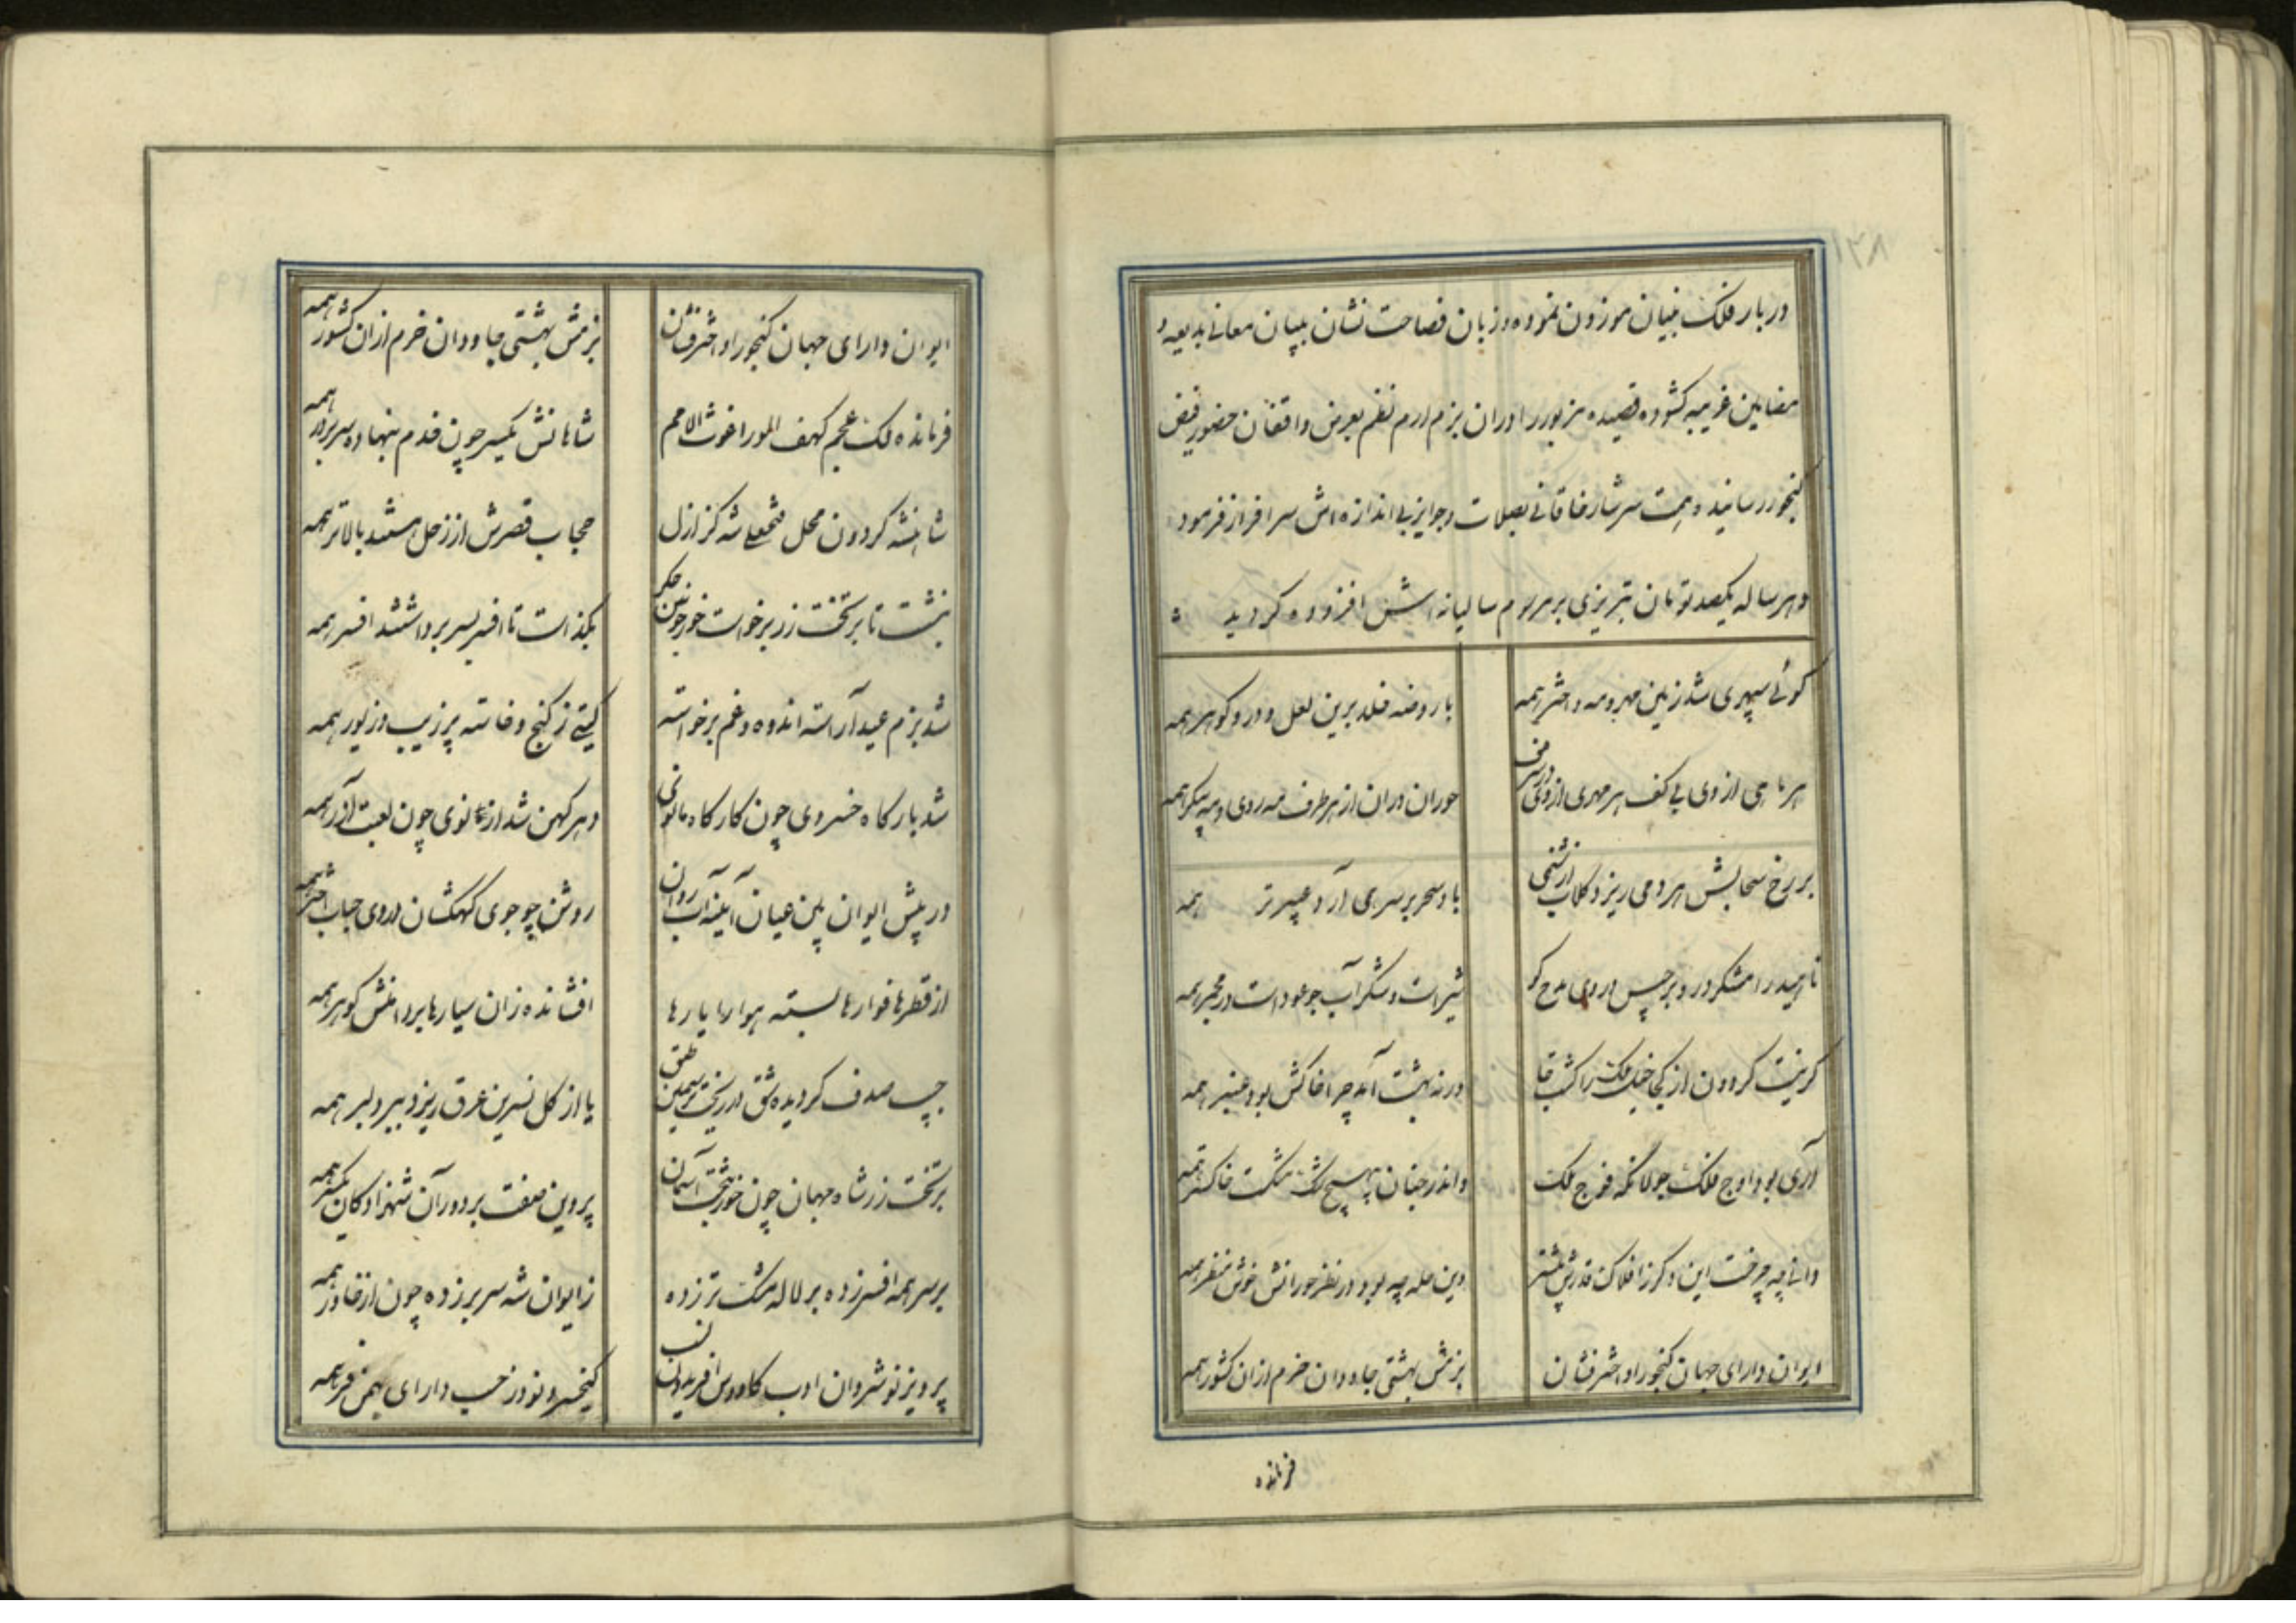 دربار فلک بنیان موزون نموده و زبان فصاحت نشان ببیان معانی بدیعه و
مضامین غریبه کشوده قصیده مزبور را دران بزم ارم نظم بعرض واقفان حضور فیض
کنجور رسانیده همت سرشار خاقانی بصلات و جوایز بی اندازه اش سرافراز فرمود
و هر ساله یکصد تومان تبریزی بر مرسوم سالیانه اش افزوده کردید
کوئی سپهری شد زمین مهر و مه و اختر همه
یا روضه خلد برین لعل و در و کوهر همه
هر ماهی از وی بی کلف هر مهری از وی در شرف
حوران دران از هر طرف مه روی و مه پیکر همه
بر رخ سحابش هر دمی ریزد کلاب از شبنمی
باد سحر بر سر همی آرد عبیر تر همه
ناهید رامشکر درو برجیس در وی مدح کو
شیر است و شکر آب جو عود است در مجمر همه
کر نیست کردون از کجا خیل ملک راکشت جا
ور نه بهشت آمد چرا خاکش بود عنبر همه
آری بود اوج فلک جولانکه فوج ملک
واندر جنان بی هیچ شک مشک است خاکستر همه
دانی چه چرخست این و کر ز افلاک قدرش بیشتر
وین خلد چه بود در نظر حورانش خوش منظر همه
ایوان دارای جهان کنجور او اختر فشان
بزمش بهشتی جاودان خرم ازان کشور همه
فرمانده
ایوان دارای جهان کنجور او اختر فشان
بزمش بهشتی جاودان خرم ازان کشور همه
فرمانده ملک عجم کهف الورا غوث الامم
شاهانش یکسر چون قدم بنهاده سر بر در همه
شاهنشه کردون محل فتحعلی شه کز ازل
حجاب قصرش از زحل هستند بالاتر همه
بنشست تا بر تخت زر برخواست خور چون
بکذاست تا افسر بسر برداشتند افسر همه
شد بزم عید آراسته اندوه و غم برخواسته
کیتی ز کنج و خاسته پر زیب و زیور همه
شد بارکاه خسروی چون کارکاه مانوی
دهر کهن شد از نوی چون لعبت آزر همه
در پیش ایوان بین عیان آیینه آب روان
روشن چو جوی کهکشان در وی حباب اختر همه
از قطرها فوارها بسته هوا را یارها
افشانده زان سیارها بر دامنش کوهر همه
جیب صدف کردیده شق در ریخته بر سیمین طبق
یا از کل نسرین عرق ریزد ببر دلبر همه
بر تخت زر شاه جهان چون خور بتخت آسمان
پروین صفت بر دور آن شهزادکان یکسر همه
بر سر همه افسر زده بر لاله مشک تر زده
ز ایوان شه سر بر زده چون از خاور همه
پرویز نوشروان ادب کاووس افریدون نسب
کیخسرو نوذر حسب دارای بهمن فر همه